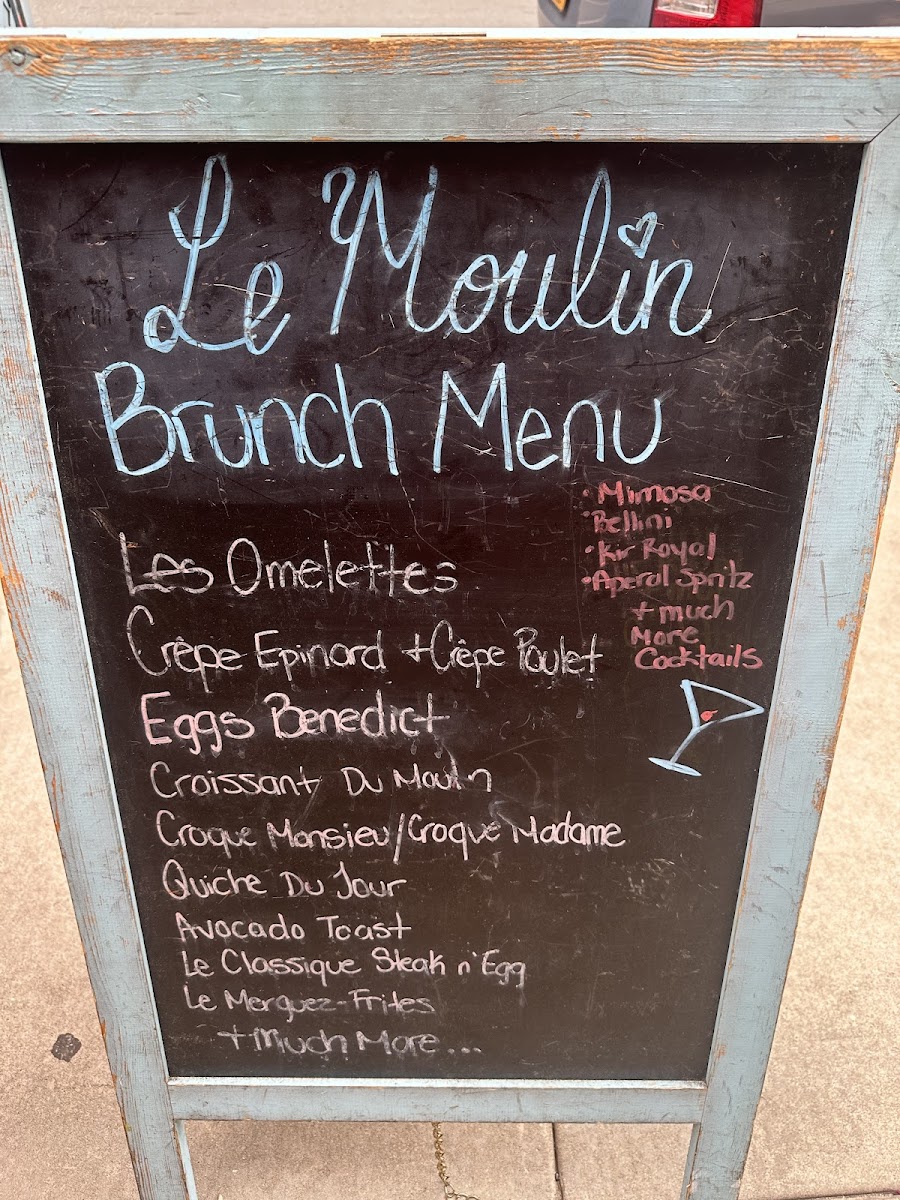 Le Moulin
Brunch Menu
• Mimosa
• Bellini
• Kir Royal
• Aperol Spritz
+ much
More
Cocktails
Les Omelettes
Crêpe Epinard + Crêpe Poulet
Eggs Benedict
Croissant Du Moulin
Croque Monsieu/Croque Madame
Quiche Du Jour
Avocado Toast
Le Classique Steak n' Egg
Le Merguez-Frites
+ Much More...